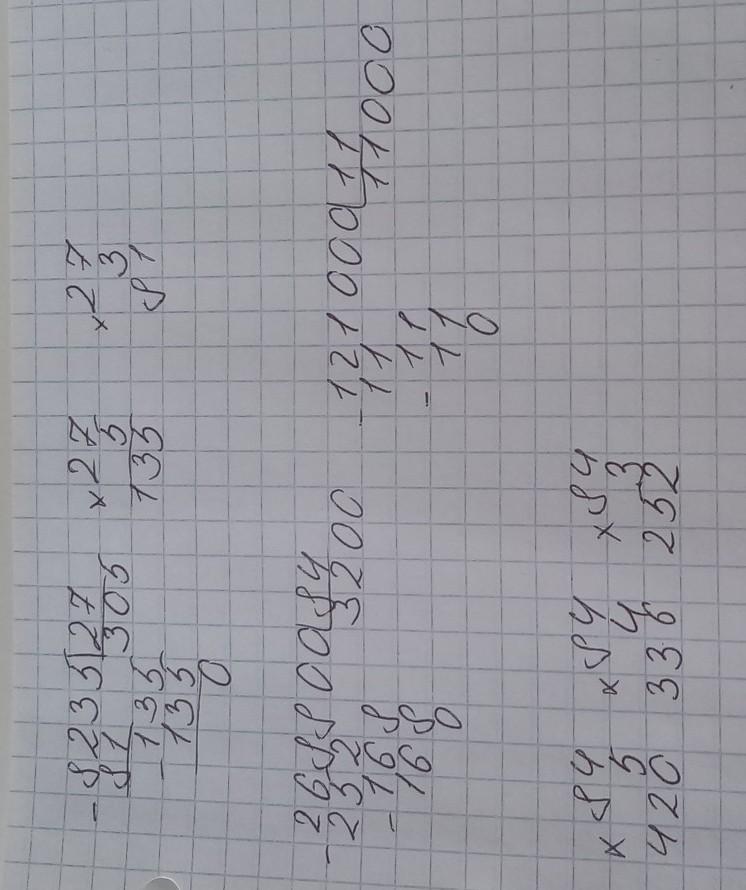 - 8235|27 × 27 × 27
81 305 5 3
- 135 135 81
135
0
- 268800|84 - 121 000|11
252 3200 11 11 000
- 168 - 11
168 11
0 0
× 84 × 84 × 84
5 4 3
420 336 252